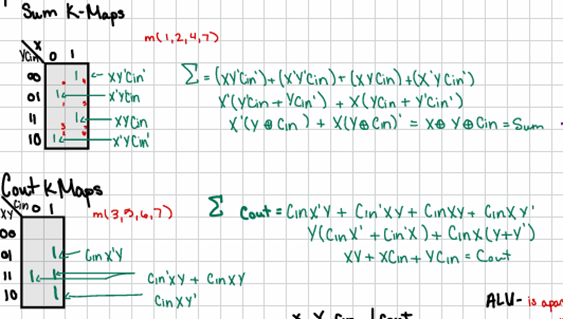 Sum K-Maps
m(1,2,4,7)
X
YCin 0 1
00 1 ← XY'Cin'
01 1 X'Y'Cin
11 1 XYCin
10 1 X'YCin'
Σ = (XY'Cin') + (X'Y'Cin) + (XYCin) + (X'YCin')
X'(Y'Cin + YCin') + X(YCin + Y'Cin')
X'(Y⊕Cin) + X(Y⊕Cin)' = X⊕Y⊕Cin = Sum
Cout K Maps
Cin 0 1
XY
m(3,5,6,7)
00
01 1 CinX'Y
11 1 1 Cin'XY + CinXY
10 1 CinXY'
Σ Cout = CinX'Y + Cin'XY + CinXY + CinXY'
Y(CinX' + Cin'X) + CinX(Y+Y')
XY + XCin + YCin = Cout
ALU - is apar
X Y Cin | Cout